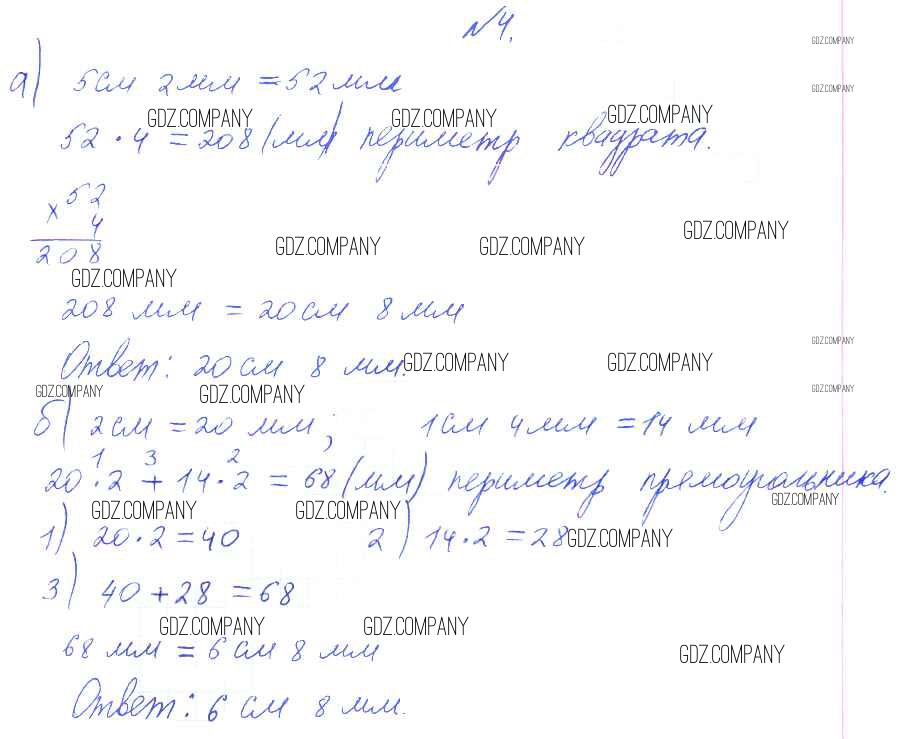 №4.
GDZ.COMPANY
а) 5см 2мм = 52мм
GDZ.COMPANY
GDZ.COMPANY GDZ.COMPANY GDZ.COMPANY
52 · 4 = 208 (мм) периметр квадрата.
× 52
4
208
GDZ.COMPANY GDZ.COMPANY GDZ.COMPANY
GDZ.COMPANY
208 мм = 20см 8мм
GDZ.COMPANY
Ответ: 20см 8 мм.
GDZ.COMPANY GDZ.COMPANY
GDZ.COMPANY GDZ.COMPANY GDZ.COMPANY
б) 2см = 20 мм; 1см 4мм = 14 мм
1 3 2
20 · 2 + 14 · 2 = 68 (мм) периметр прямоугольника.
GDZ.COMPANY GDZ.COMPANY GDZ.COMPANY
1) 20 · 2 = 40 2) 14 · 2 = 28
GDZ.COMPANY
3) 40 + 28 = 68
GDZ.COMPANY GDZ.COMPANY
68 мм = 6 см 8 мм
GDZ.COMPANY
Ответ: 6 см 8 мм.